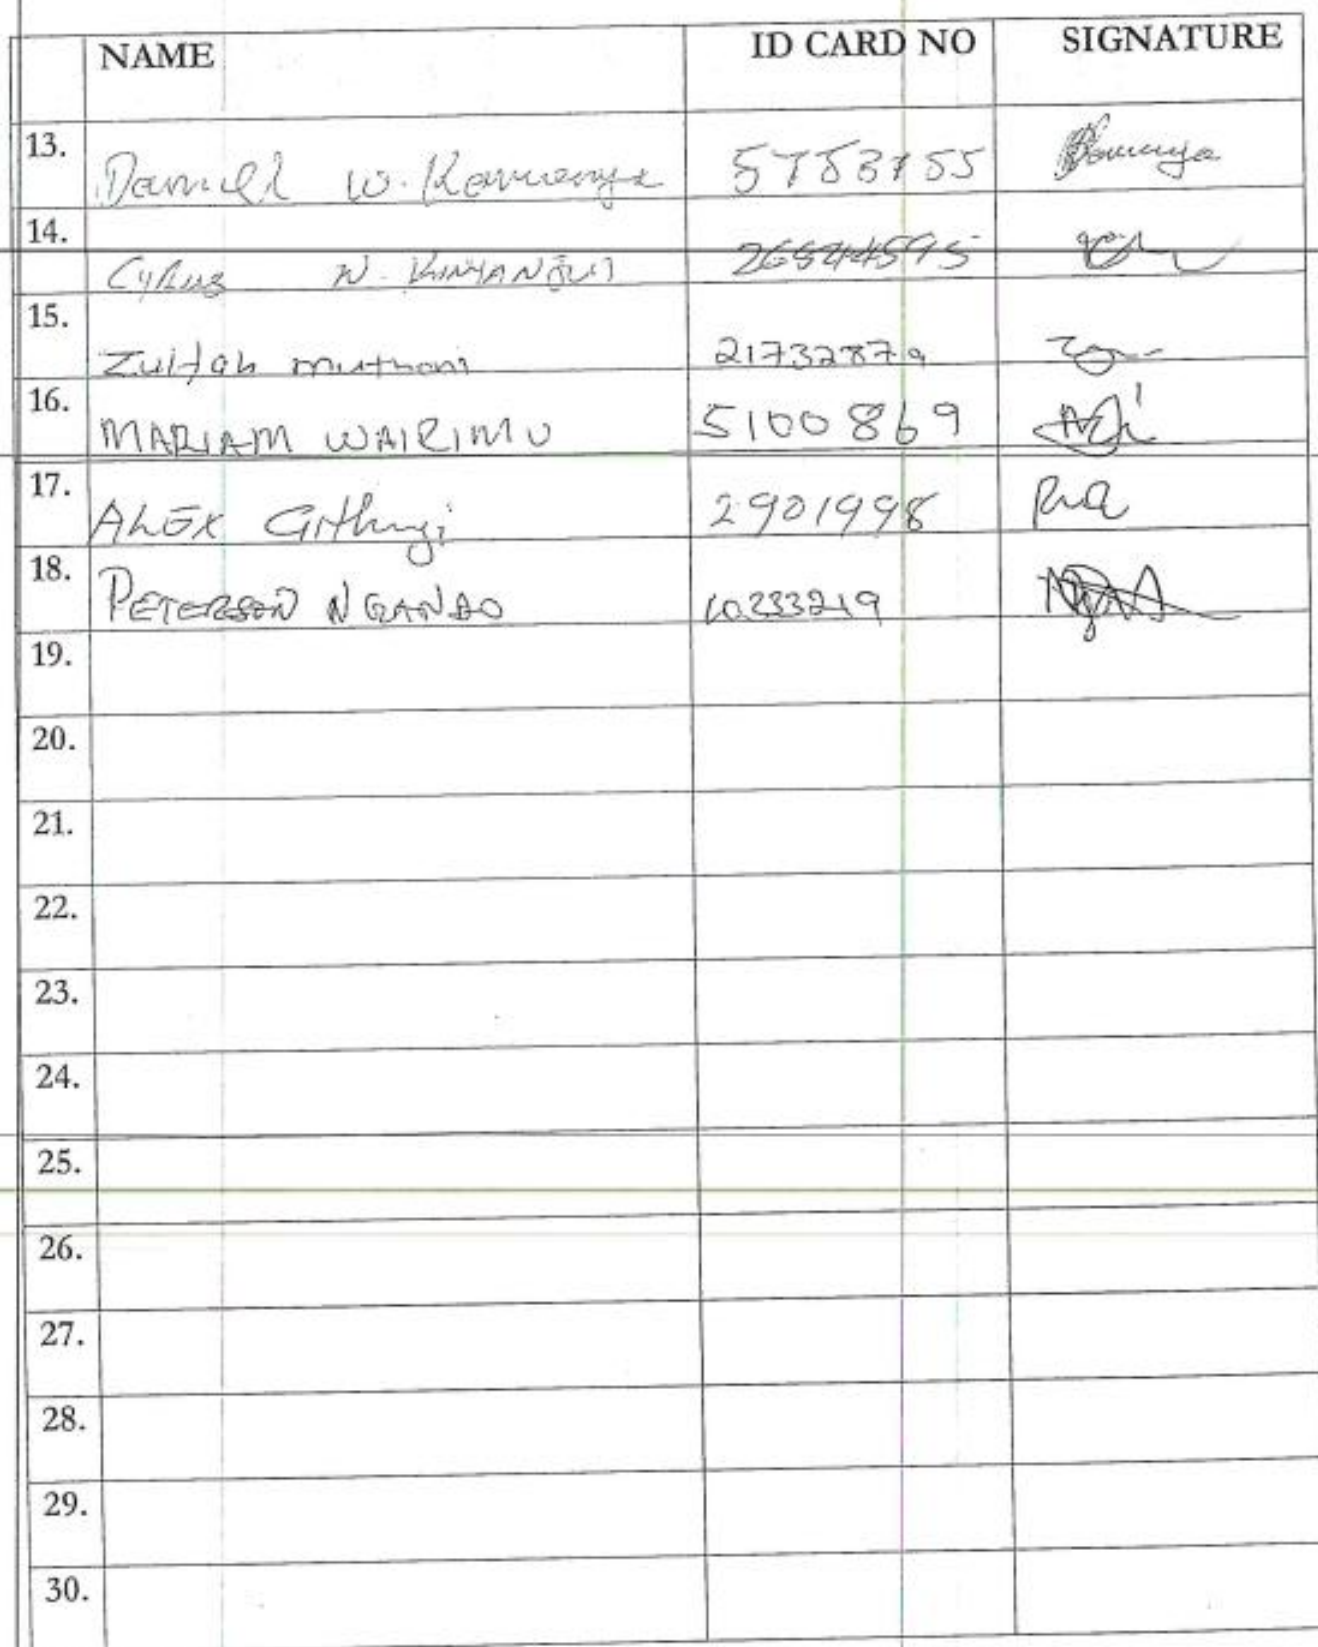 NAME ID CARD NO SIGNATURE
13. Daniel W. Kamanya
14. Cyrus N. KINYANJUI
15. Zulfah muthoni 21732879
16. MARIAM WAIRIMU 5100869
17. ALEX Githugi 2901998
18. PETERSON NGANDO 10233219
19.
20.
21.
22.
23.
24.
25.
26.
27.
28.
29.
30.